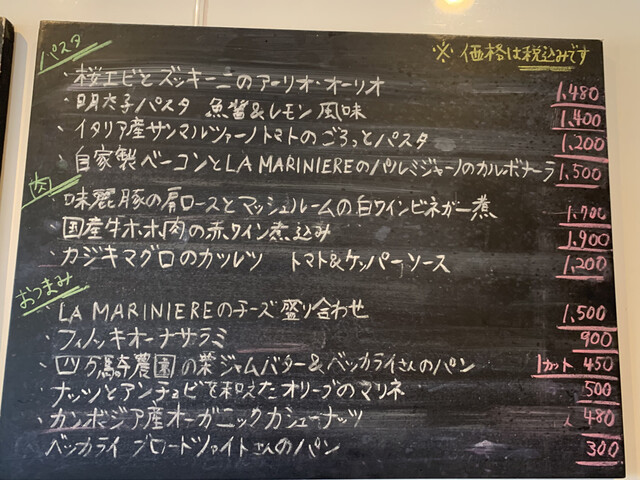 パスタ
※ 価格は税込みです
・桜エビとズッキーニのアーリオ・オーリオ 1,480
・明太子パスタ 魚醤&レモン風味 1,400
・イタリア産サンマルツァーノトマトのごろっとパスタ 1,200
・自家製ベーコンとLA MARINIEREのパルミジャーノのカルボナーラ 1,500
肉
・味麗豚の肩ロースとマッシュルームの白ワインビネガー煮 1,700
・国産牛ホホ肉の赤ワイン煮込み 1,900
・カジキマグロのカツレツ トマト&ケッパーソース 1,200
おつまみ
LA MARINIEREのチーズ盛り合わせ 1,500
・フィノッキオーナサラミ 900
・四万騎農園の栗ジャムバター&ベッカライさんのパン 1カット 450
・ナッツとアンチョビを和えたオリーブのマリネ 500
・カンボジア産オーガニックカシューナッツ 480
ベッカライ ブロートツァイトさんのパン 300